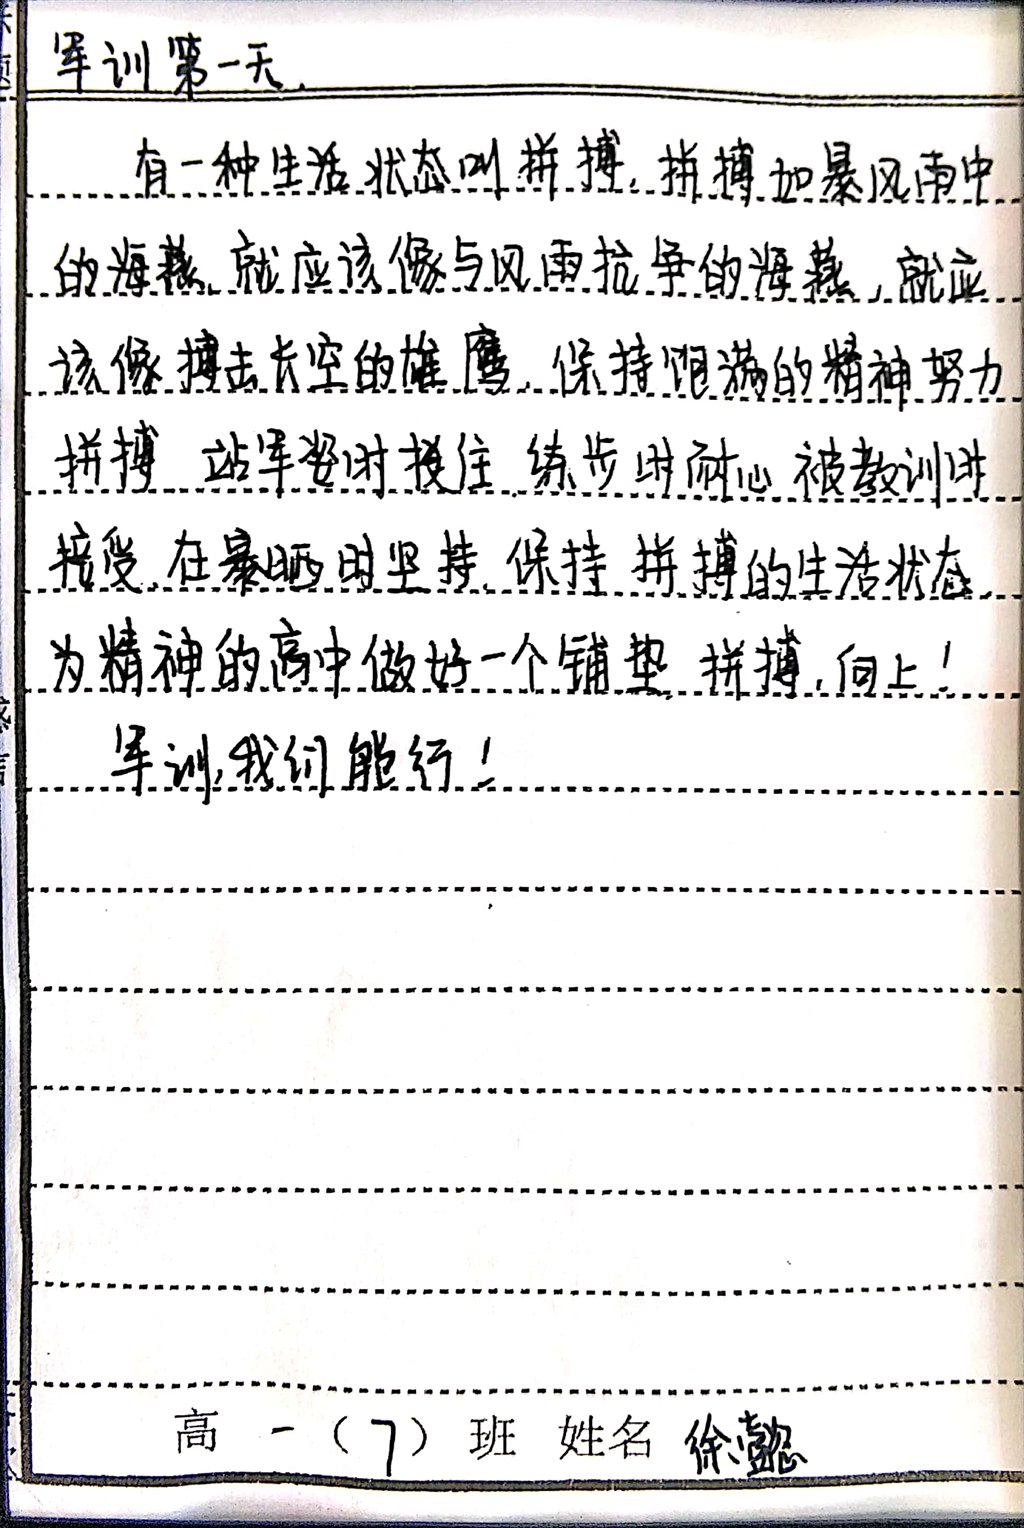 军训第一天.
有一种生活状态叫拼搏,拼搏如暴风雨中
的海燕,就应该像与风雨抗争的海燕,就应
该像搏击长空的雄鹰,保持饱满的精神努力
拼搏 站军姿时挺住 练步时耐心 被教训时
接受,在暴晒时坚持,保持拼搏的生活状态,
为精神的高中做好一个铺垫 拼搏,向上!
军训,我们能行!
高一(7)班 姓名 徐懿